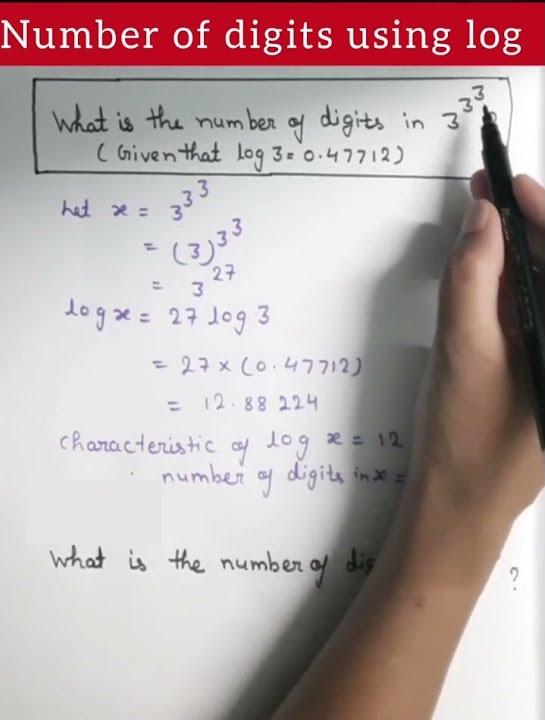 Number of digits using log
What is the number of digits in 3^3^3
(Given that log 3 = 0.47712)
Let x = 3^3^3
= (3)^3^3
= 3^27
log x = 27 log 3
= 27 × (0.47712)
= 12.88224
characteristic of log x = 12
number of digits in x =
What is the number of ?